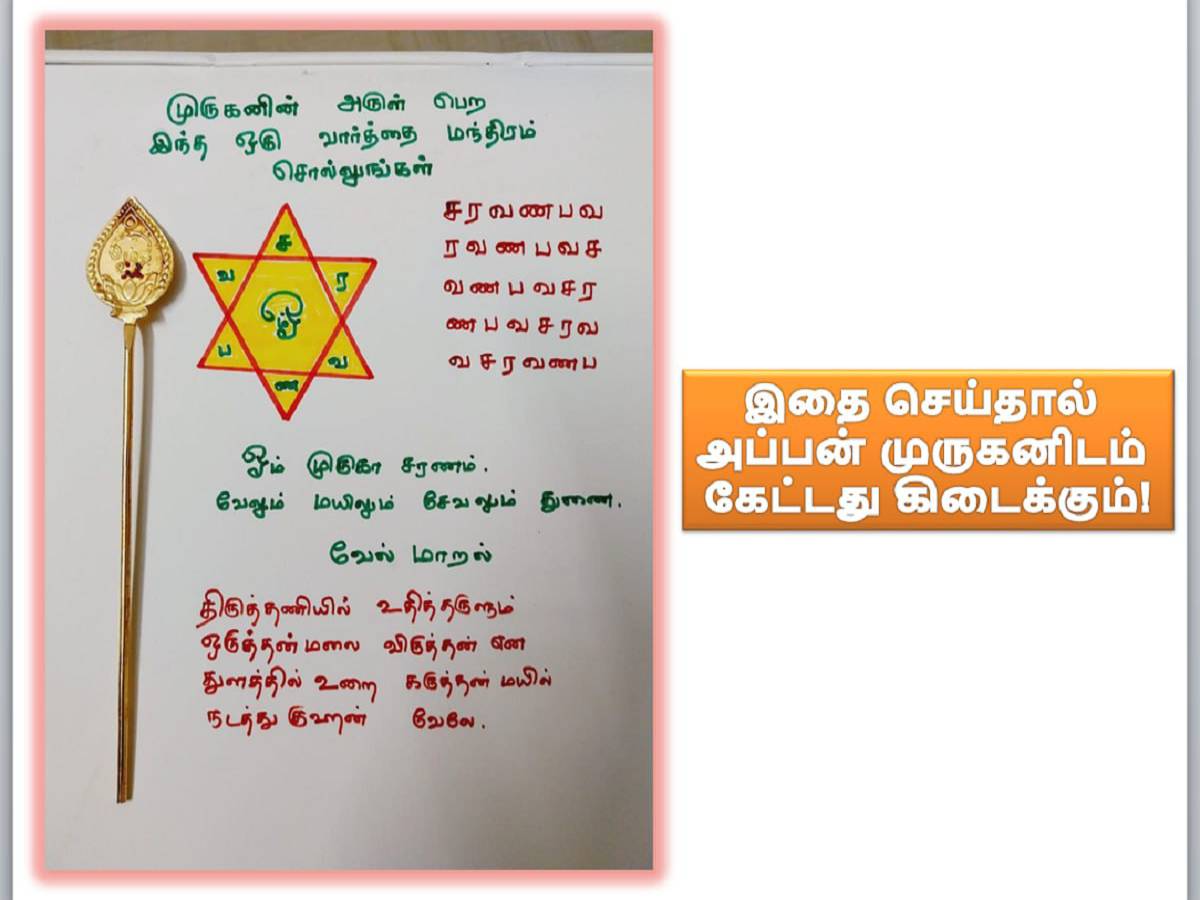 முருகனின் அருள் பெற
இந்த ஒரு வார்த்தை மந்திரம்
சொல்லுங்கள்
ச
வ
ர
ஓம்
ப
வ
ண
ச ர வ ண ப வ
ர வ ண ப வ ச
வ ண ப வ ச ர
ண ப வ ச ர வ
வ ச ர வ ண ப
ஓம் முருகா சரணம்.
வேலும் மயிலும் சேவலும் துணை.
வேல் மாறல்
திருத்தணியில் உதித்தருளும்
ஒருத்தன் மலை விருத்தன் என
துளத்தில் உறை கருத்தன் மயில்
நடத்து குஹன் வேலே.
இதை செய்தால்
அப்பன் முருகனிடம்
கேட்டது கிடைக்கும்!